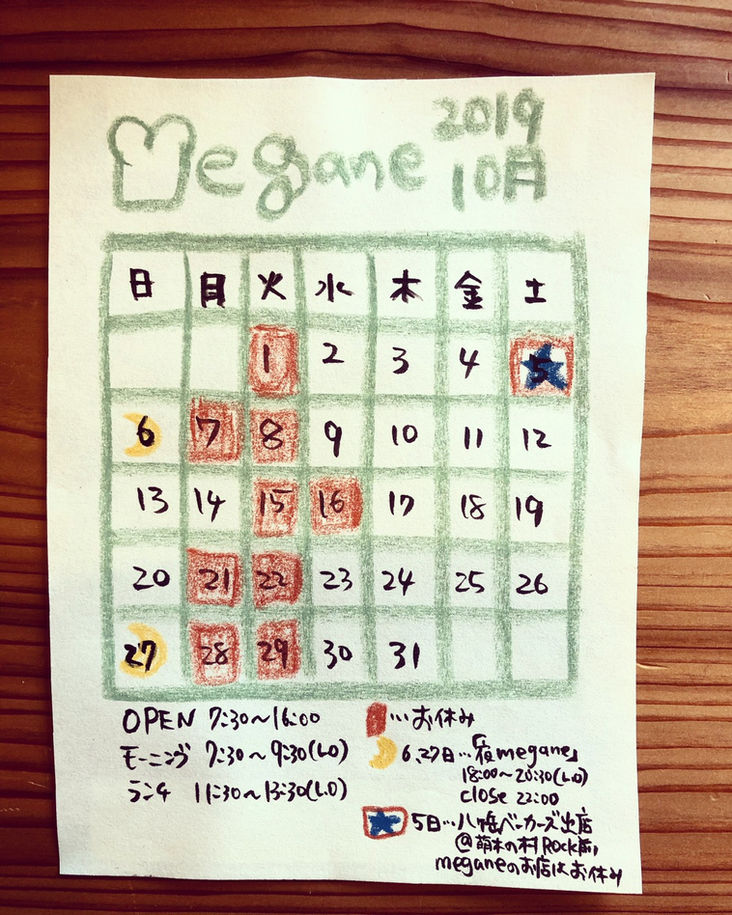 Megane 2019
10月
日 月 火 水 木 金 土
1 2 3 4 5
6 7 8 9 10 11 12
13 14 15 16 17 18 19
20 21 22 23 24 25 26
27 28 29 30 31
OPEN 7:30〜16:00
モーニング 7:30〜9:30(L.O)
ランチ 11:30〜13:30(L.O)
…お休み
6,27日…「夜megane」
18:00〜20:30(L.O)
close 22:00
5日…八ヶ岳ベーカーズ出店
@萌木の村Rock前,
meganeのお店はお休み